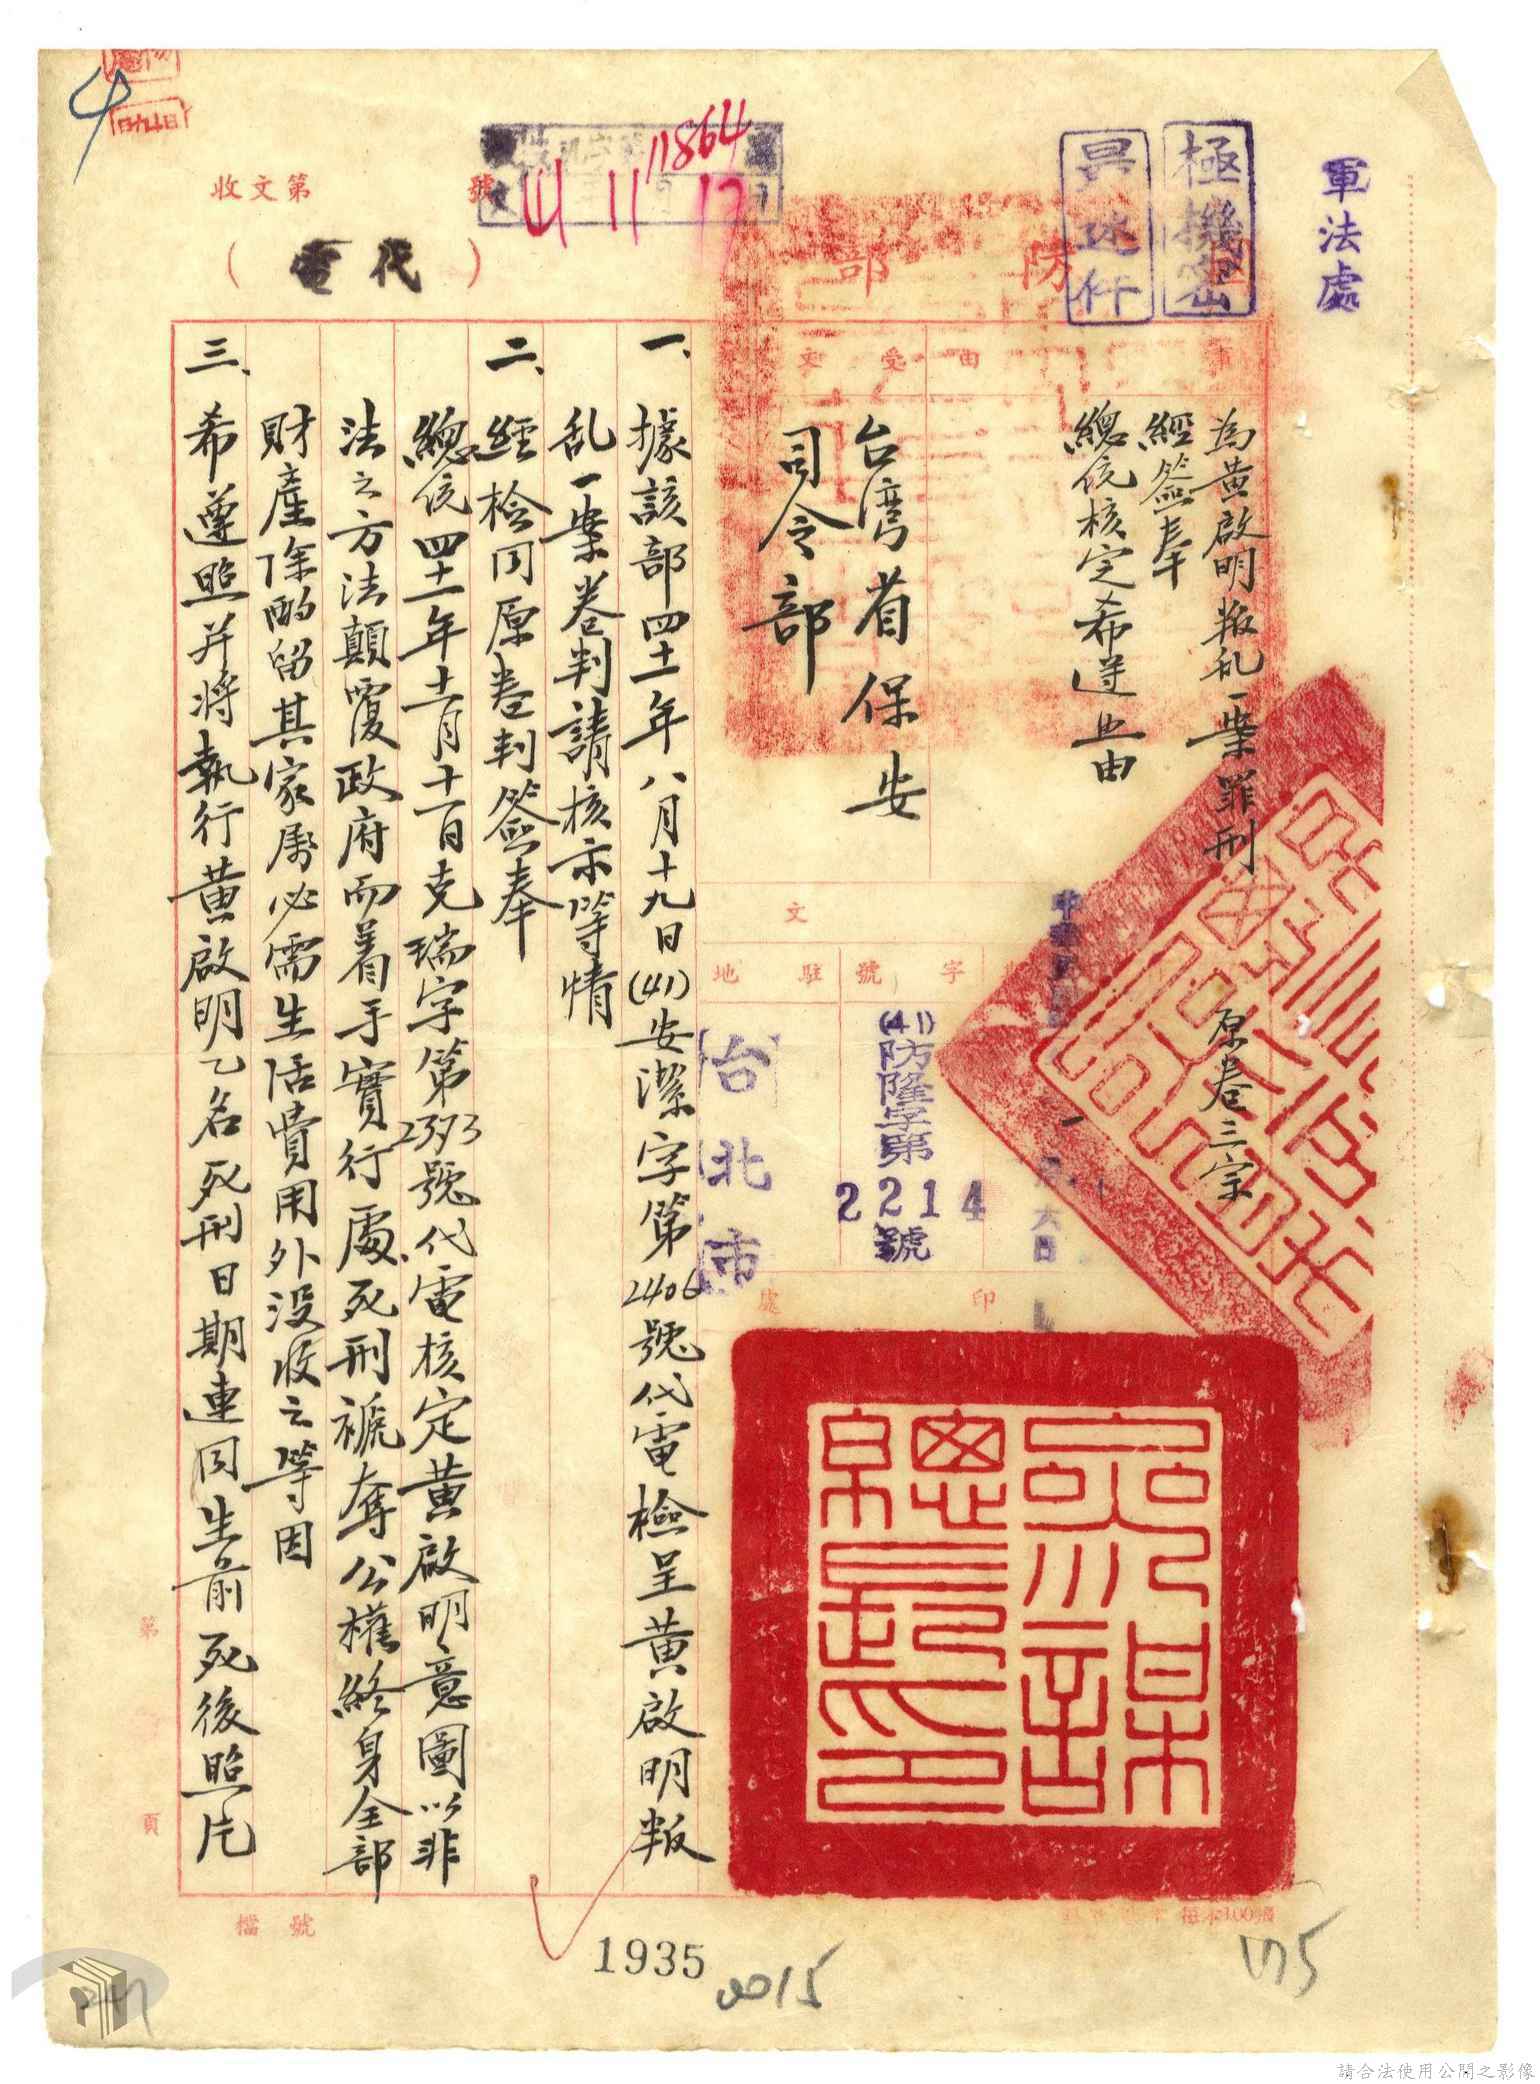 軍法處
極機密
最速件
國防部
(代電)
收文第 號
11864
41 11 17
事由
為黃啟明叛乱一案罪刑
經簽奉
總統核定希遵照由
原卷三宗
受文者
台湾省保安
司令部
文
字號
(41)防隆字第
2214
號
駐地
台北市
印
處
一、據該部四十一年八月十九日(41)安潔字第2406號代電檢呈黃啟明叛
乱一案卷判請核示等情
二、經檢同原卷判簽奉
總統四十一年十一月十一日克瑞字第2393號代電核定黃啟明意圖以非
法之方法顛覆政府而着手實行處死刑褫奪公權終身全部
財產除酌留其家屬必需生活費用外沒收之等因
三、希遵照并將執行黃啟明乙名死刑日期連同生前死後照片
參謀總長印
第 頁
檔號
1935
0015
175
請合法使用公開之影像